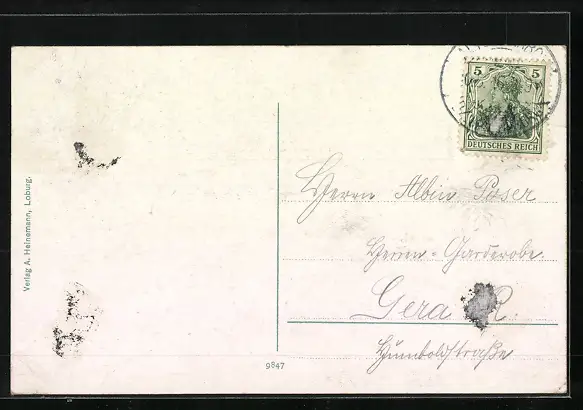 5 5
DEUTSCHES REICH
Verlag A. Heinemann, Loburg.
Herrn Albin Poser
Herren-Garderobe.
Gera R.
Humboldtstraße
9847